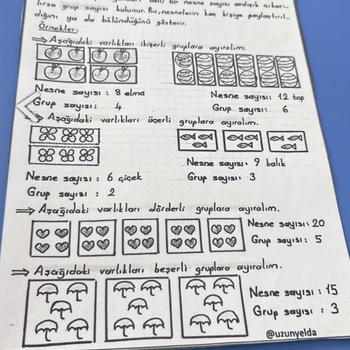 bir nesne sayısı ardışık çıkarı-
lırsa grup sayısı bulunur. Bu, nesnelerin kaç kişiye paylaştırıl-
dığını ya da bölündüğünü gösterir.
Örnekler:
⇒ Aşağıdaki varlıkları ikişerli gruplara ayıralım.
Nesne sayısı: 8 elma
Grup sayısı: 4
Nesne sayısı: 12 top
Grup sayısı: 6
⇒ Aşağıdaki varlıkları üçerli gruplara ayıralım.
Nesne sayısı: 6 çiçek
Grup sayısı: 2
Nesne sayısı: 9 balık
Grup sayısı: 3
⇒ Aşağıdaki varlıkları dörderli gruplara ayıralım.
Nesne sayısı: 20
Grup sayısı: 5
⇒ Aşağıdaki varlıkları beşerli gruplara ayıralım.
Nesne sayısı: 15
Grup sayısı: 3
@uzunyelda